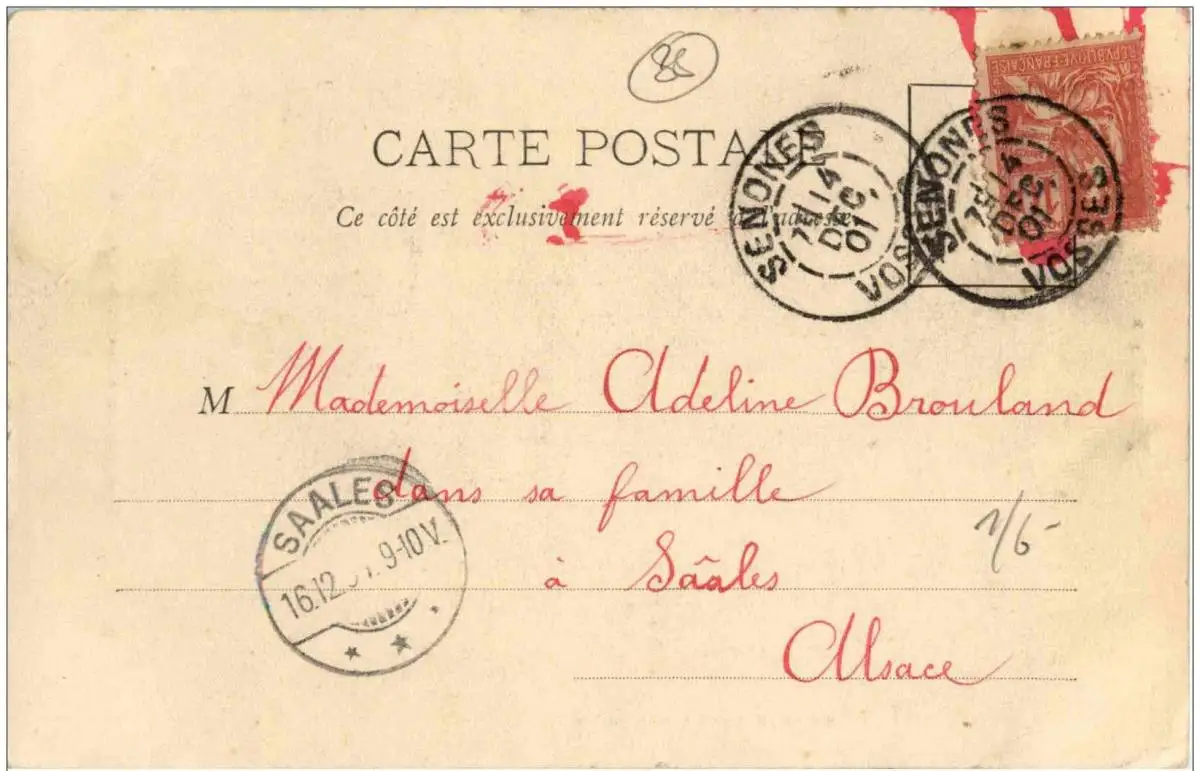 88
RÉPUBLIQUE FRANÇAISE
CARTE POSTALE
Ce côté est exclusivement réservé à l'adresse
SENONES
14
DEC.
01
VOSGES
SENONES
14
DEC.
01
VOSGES
M Mademoiselle Adeline Brouland
dans sa famille
à Saâles
Alsace
SAALES
16.12. 9-10V.
1/6-